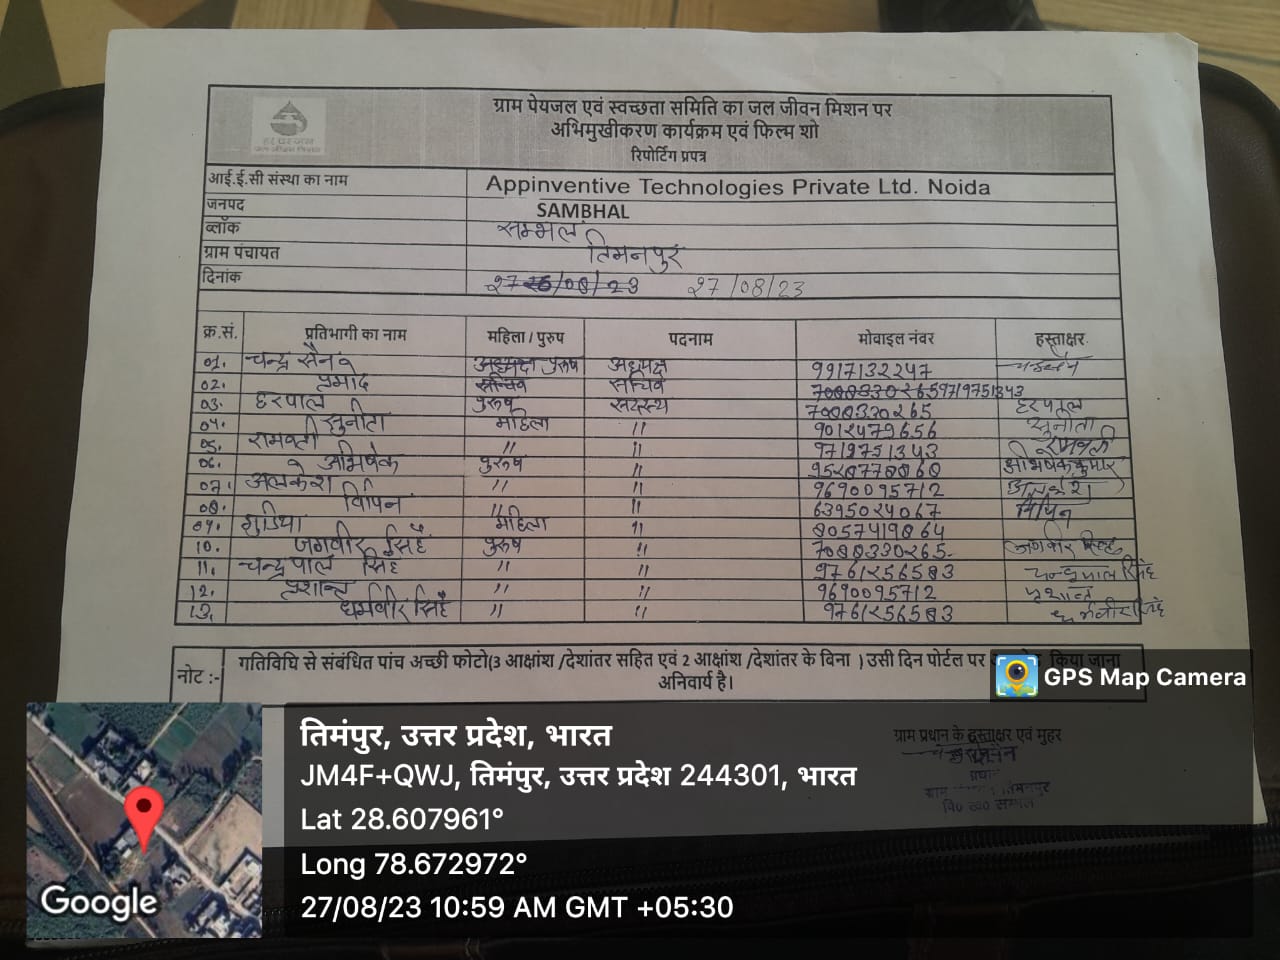 हर घर जल
जल जीवन मिशन
ग्राम पेयजल एवं स्वच्छता समिति का जल जीवन मिशन पर
अभिमुखीकरण कार्यक्रम एवं फिल्म शो
रिपोर्टिंग प्रपत्र
आई.ई.सी संस्था का नाम Appinventive Technologies Private Ltd. Noida
जनपद SAMBHAL
ब्लॉक सम्भल
ग्राम पंचायत तिमनपुर
दिनांक 27/08/23
क्र.सं. प्रतिभागी का नाम महिला / पुरुष पदनाम मोवाइल नंबर हस्ताक्षर
01. चन्द्र सैन पुरुष अध्यक्ष 9917132247
02. सचिव सचिव 9719751343
03. हरपाल पुरुष सदस्य 7088330265 हरपाल
04. सुनीता महिला // 9012479656 सुनीता
05. रामवती // // 9719751343 रामवती
06. अभिषेक पुरुष // अभिषेक कुमार
07. अलकेश // // 9690095712
08. विपिन // // 6395024067 विपिन
09. गुडिया महिला // 8057419864
10. जगवीर सिंह पुरुष // 7088330265 जगवीर सिंह
11. चन्द्रपाल सिंह // // 9761256583 चन्द्रपाल सिंह
12. प्रशान्त // // 9690095712 प्रशान्त
13. धर्मवीर सिंह // // 9761256583 धर्मवीर सिंह
नोट :- गतिविधि से संबंधित पांच अच्छी फोटो(3 आक्षांश /देशांतर सहित एवं 2 आक्षांश /देशांतर के बिना ) उसी दिन पोर्टल पर किया जाना
अनिवार्य है।
GPS Map Camera
ग्राम प्रधान के हस्ताक्षर एवं मुहर
प्रधान
ग्राम तिमनपुर
तिमंपुर, उत्तर प्रदेश, भारत
JM4F+QWJ, तिमंपुर, उत्तर प्रदेश 244301, भारत
Lat 28.607961°
Long 78.672972°
27/08/23 10:59 AM GMT +05:30
Google